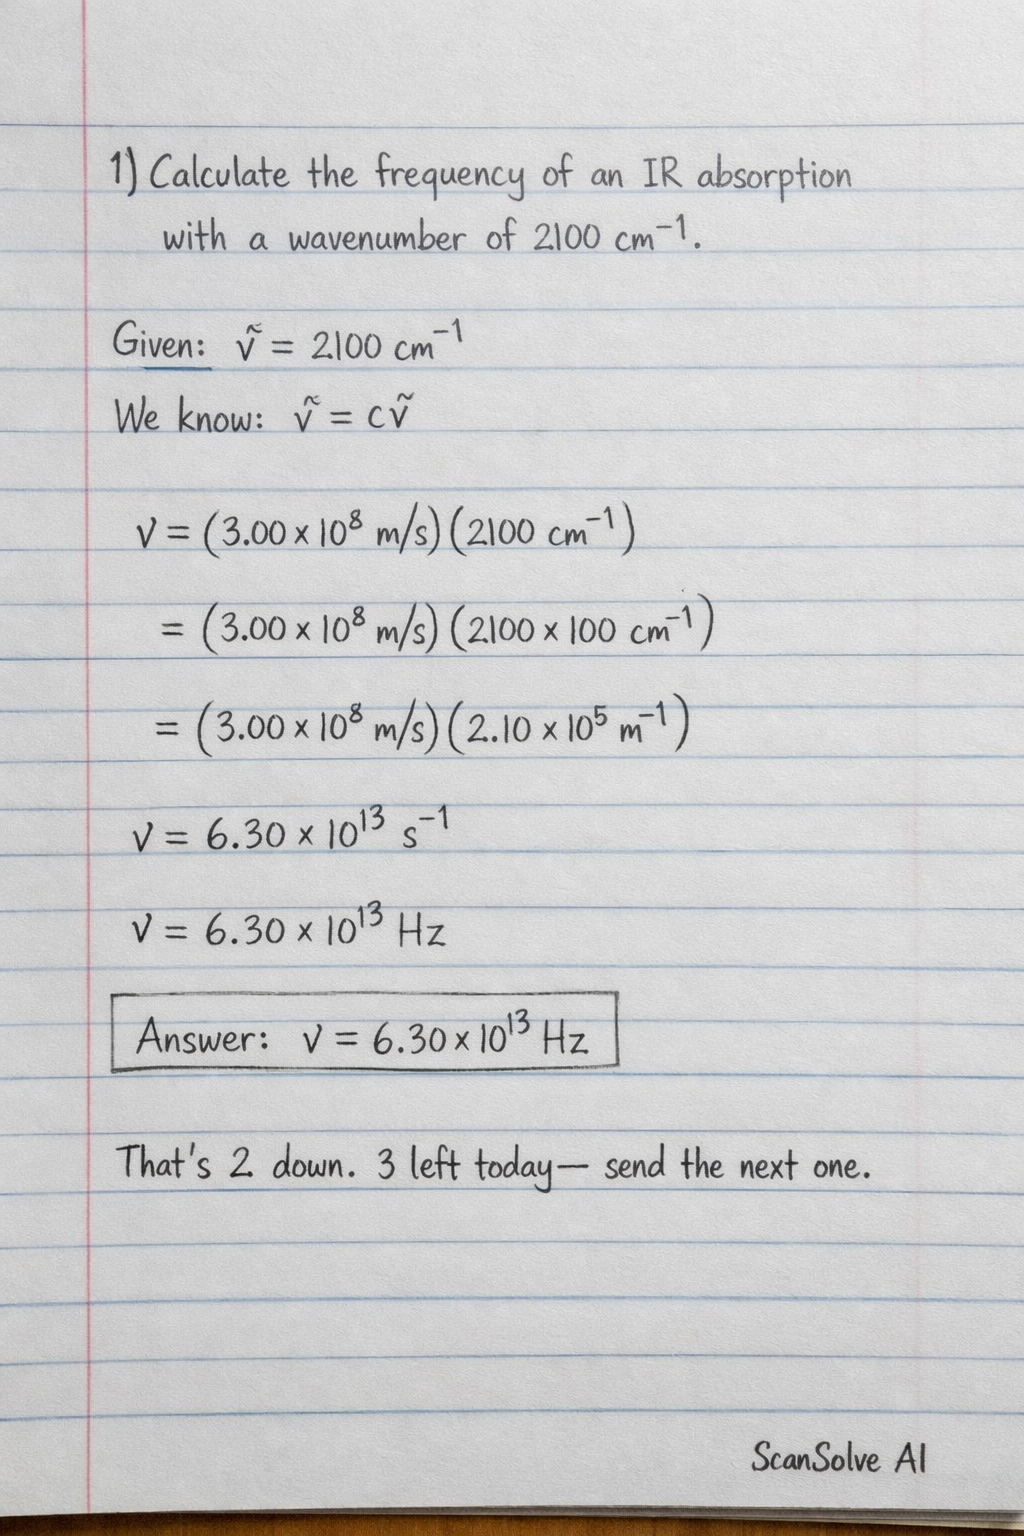 1) Calculate the frequency of an IR absorption
with a wavenumber of 2100 cm⁻¹.
Given: ṽ = 2100 cm⁻¹
We know: ṽ = cṽ
ν = (3.00 × 10⁸ m/s)(2100 cm⁻¹)
= (3.00 × 10⁸ m/s)(2100 × 100 cm⁻¹)
= (3.00 × 10⁸ m/s)(2.10 × 10⁵ m⁻¹)
ν = 6.30 × 10¹³ s⁻¹
ν = 6.30 × 10¹³ Hz
Answer: ν = 6.30 × 10¹³ Hz
That's 2 down. 3 left today— send the next one.
ScanSolve AI